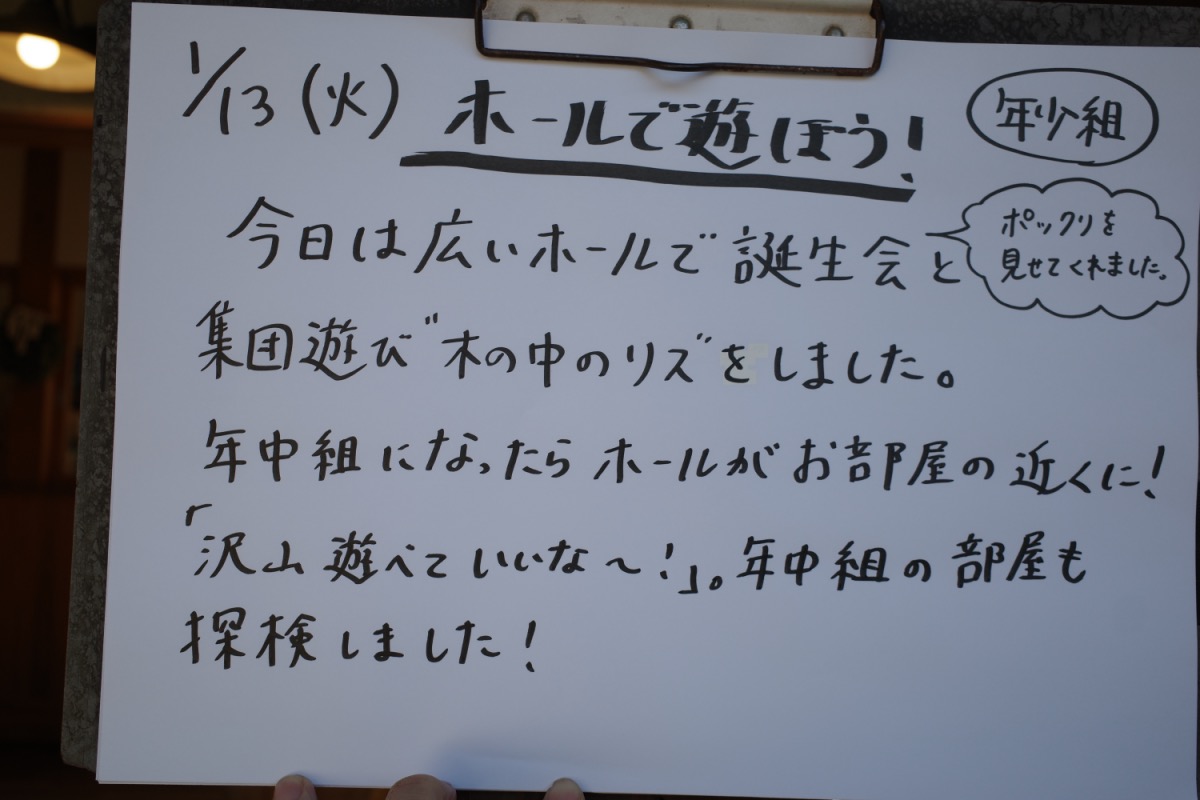 1/13(火) ホールで遊ぼう!
年少組
今日は広いホールで誕生会と
ポックリを
見せてくれました。
集団遊び"木の中のリズ"をしました。
年中組になったらホールがお部屋の近くに!
「沢山遊べていいな〜!」。年中組の部屋も
探検しました!